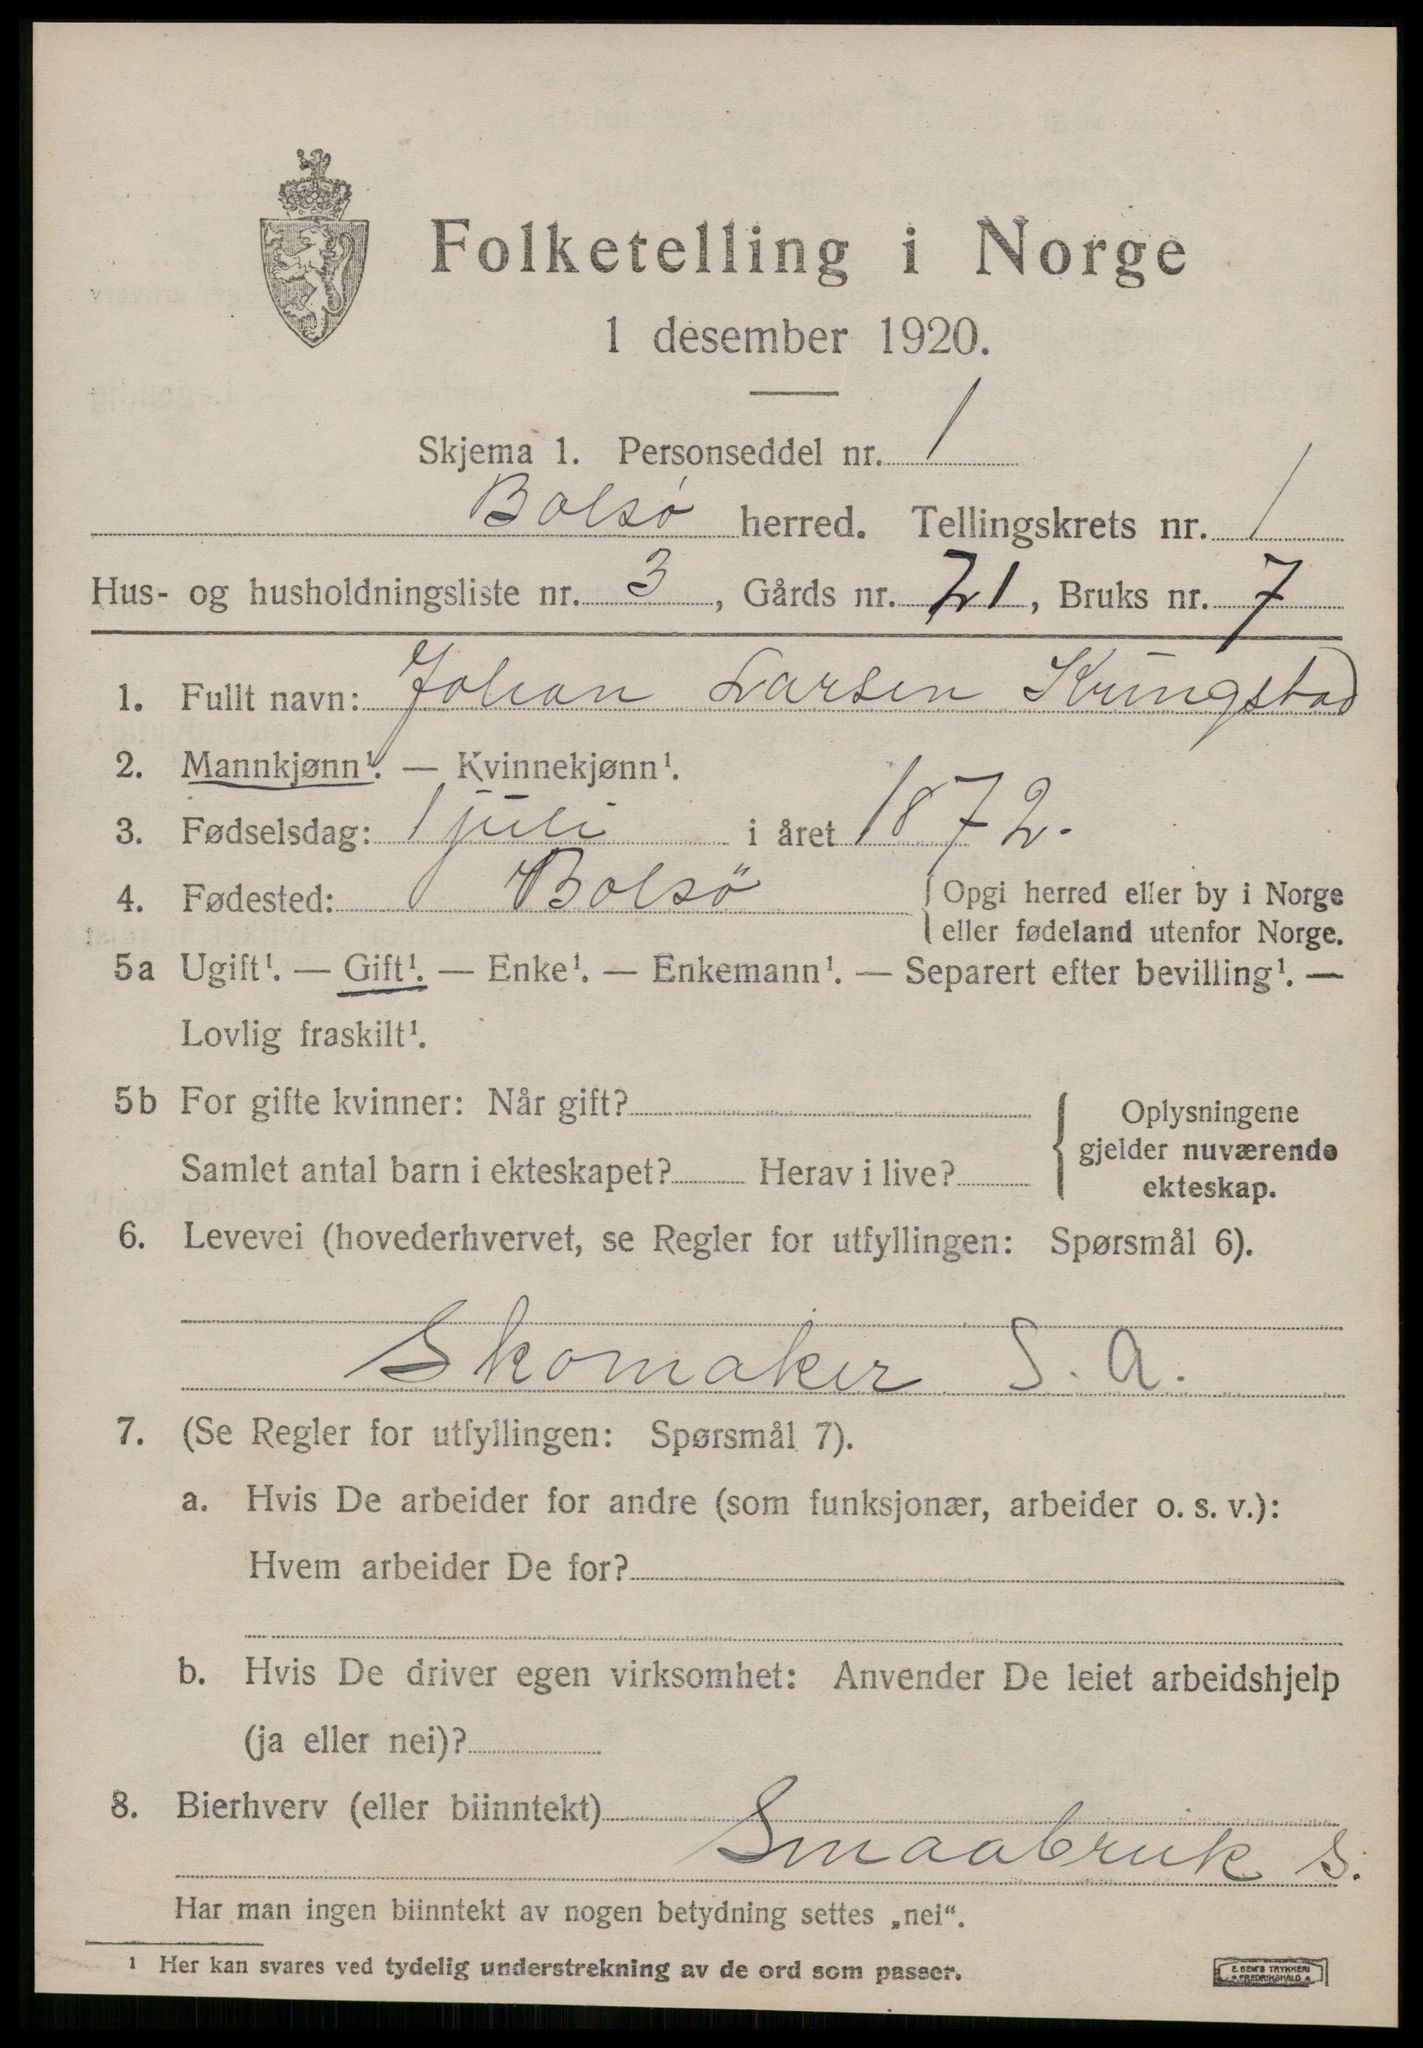 Folketelling i Norge
1 desember 1920.
Skjema 1. Personseddel nr. 1
Bolsø herred. Tellingskrets nr. 1
Hus- og husholdningsliste nr. 3, Gårds nr. 21, Bruks nr. 7
1. Fullt navn: Johan Larsen Kringstad
2. Mannkjønn¹. — Kvinnekjønn¹.
3. Fødselsdag: 1 juli i året 1872.
4. Fødested: Bolsö { Opgi herred eller by i Norge
eller fødeland utenfor Norge.
5a Ugift¹. — Gift¹. — Enke¹. — Enkemann¹. — Separert efter bevilling¹. —
Lovlig fraskilt¹.
5b For gifte kvinner: Når gift?
Samlet antal barn i ekteskapet? Herav i live?
{ Oplysningene
gjelder nuværende
ekteskap.
6. Levevei (hovederhvervet, se Regler for utfyllingen: Spørsmål 6).
Skomaker S. A.
7. (Se Regler for utfyllingen: Spørsmål 7).
a. Hvis De arbeider for andre (som funksjonær, arbeider o. s. v.):
Hvem arbeider De for?
b. Hvis De driver egen virksomhet: Anvender De leiet arbeidshjelp
(ja eller nei)?
8. Bierhverv (eller biinntekt)
Smaabruk S.
Har man ingen biinntekt av nogen betydning settes „nei“.
¹ Her kan svares ved tydelig understrekning av de ord som passer.
E. SEM'S TRYKKERI
FREDRIKSHALD